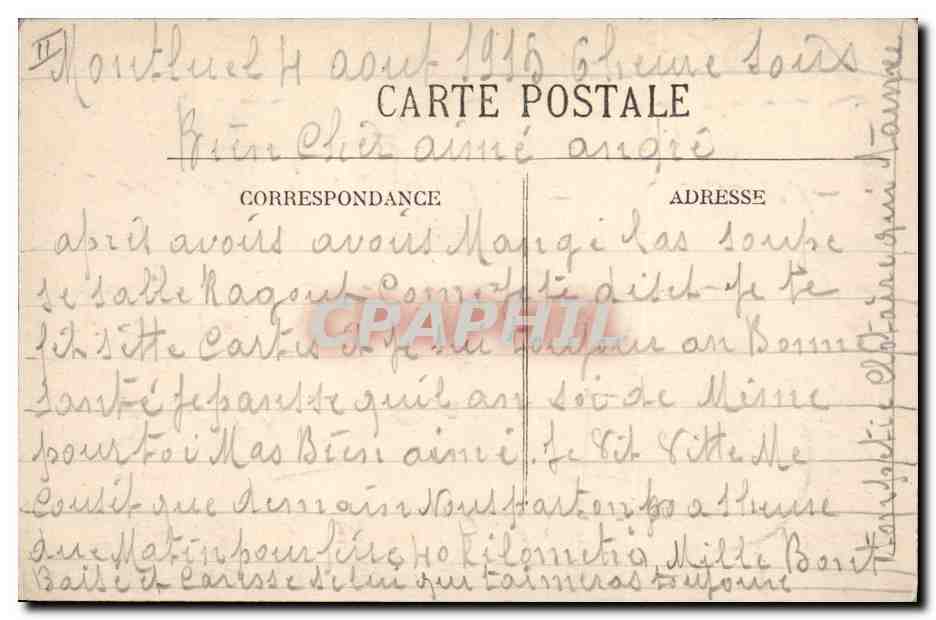 II Montluel 4 aout 1915 6 heure soirs
CARTE POSTALE
Bien Cher aimé andré
CORRESPONDANCE
ADRESSE
apris avoirs avoirs Mangé las soupe
se salle Ragout Comme je te diset je te
fit sette Cartes et je sui toujour an Bonne
santé je pansse quil an soi de Mime
pour toi Mas Bien aimé. Je Vit Vitte Me
Couset que demain Nous parton po a 3 heure
due Matin pour feire 40 kilometre Mille Bont
Baisé et Caresse selui qui taimeras toujoure
Ton petit Clotaire qui taime
CPAPHIL